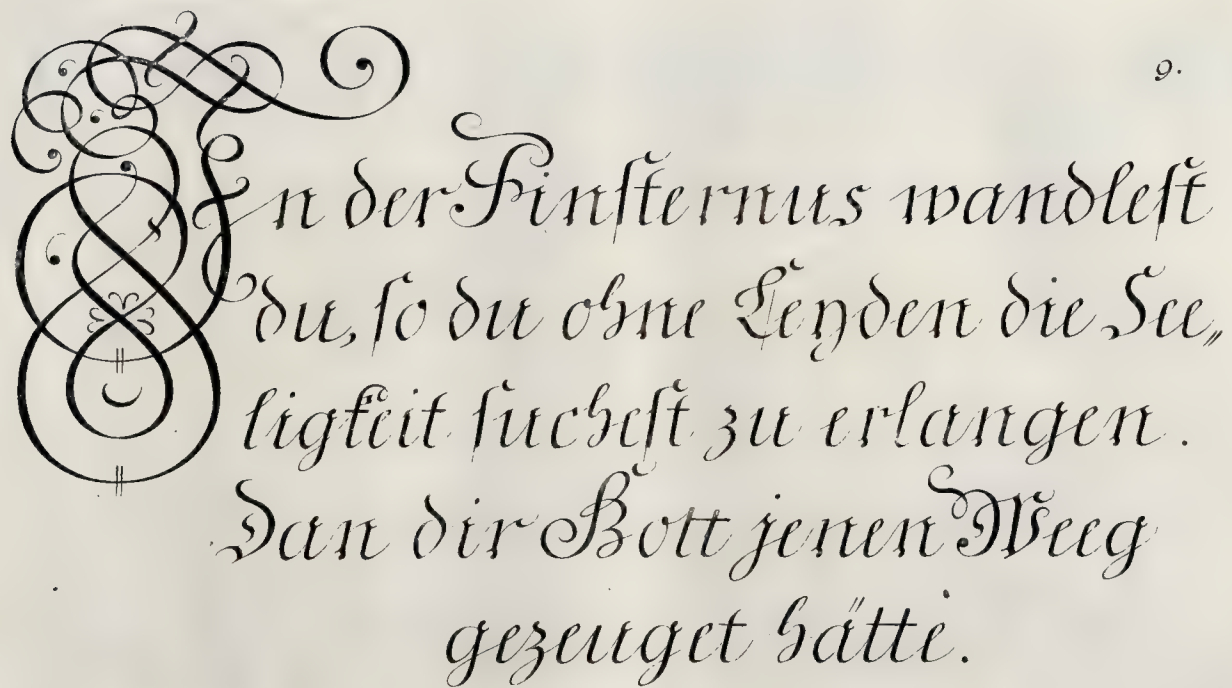 9.
In der Finsternus wandlest
du, so du ohne Leyden die See„
ligkeit suchest zu erlangen.
Dan dir Gott jenen Weeg
gezeuget hätte.